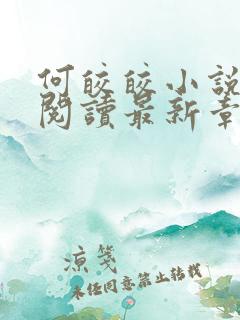 何皎皎小說
閱讀最新章
凉笺
未经同意禁止转载